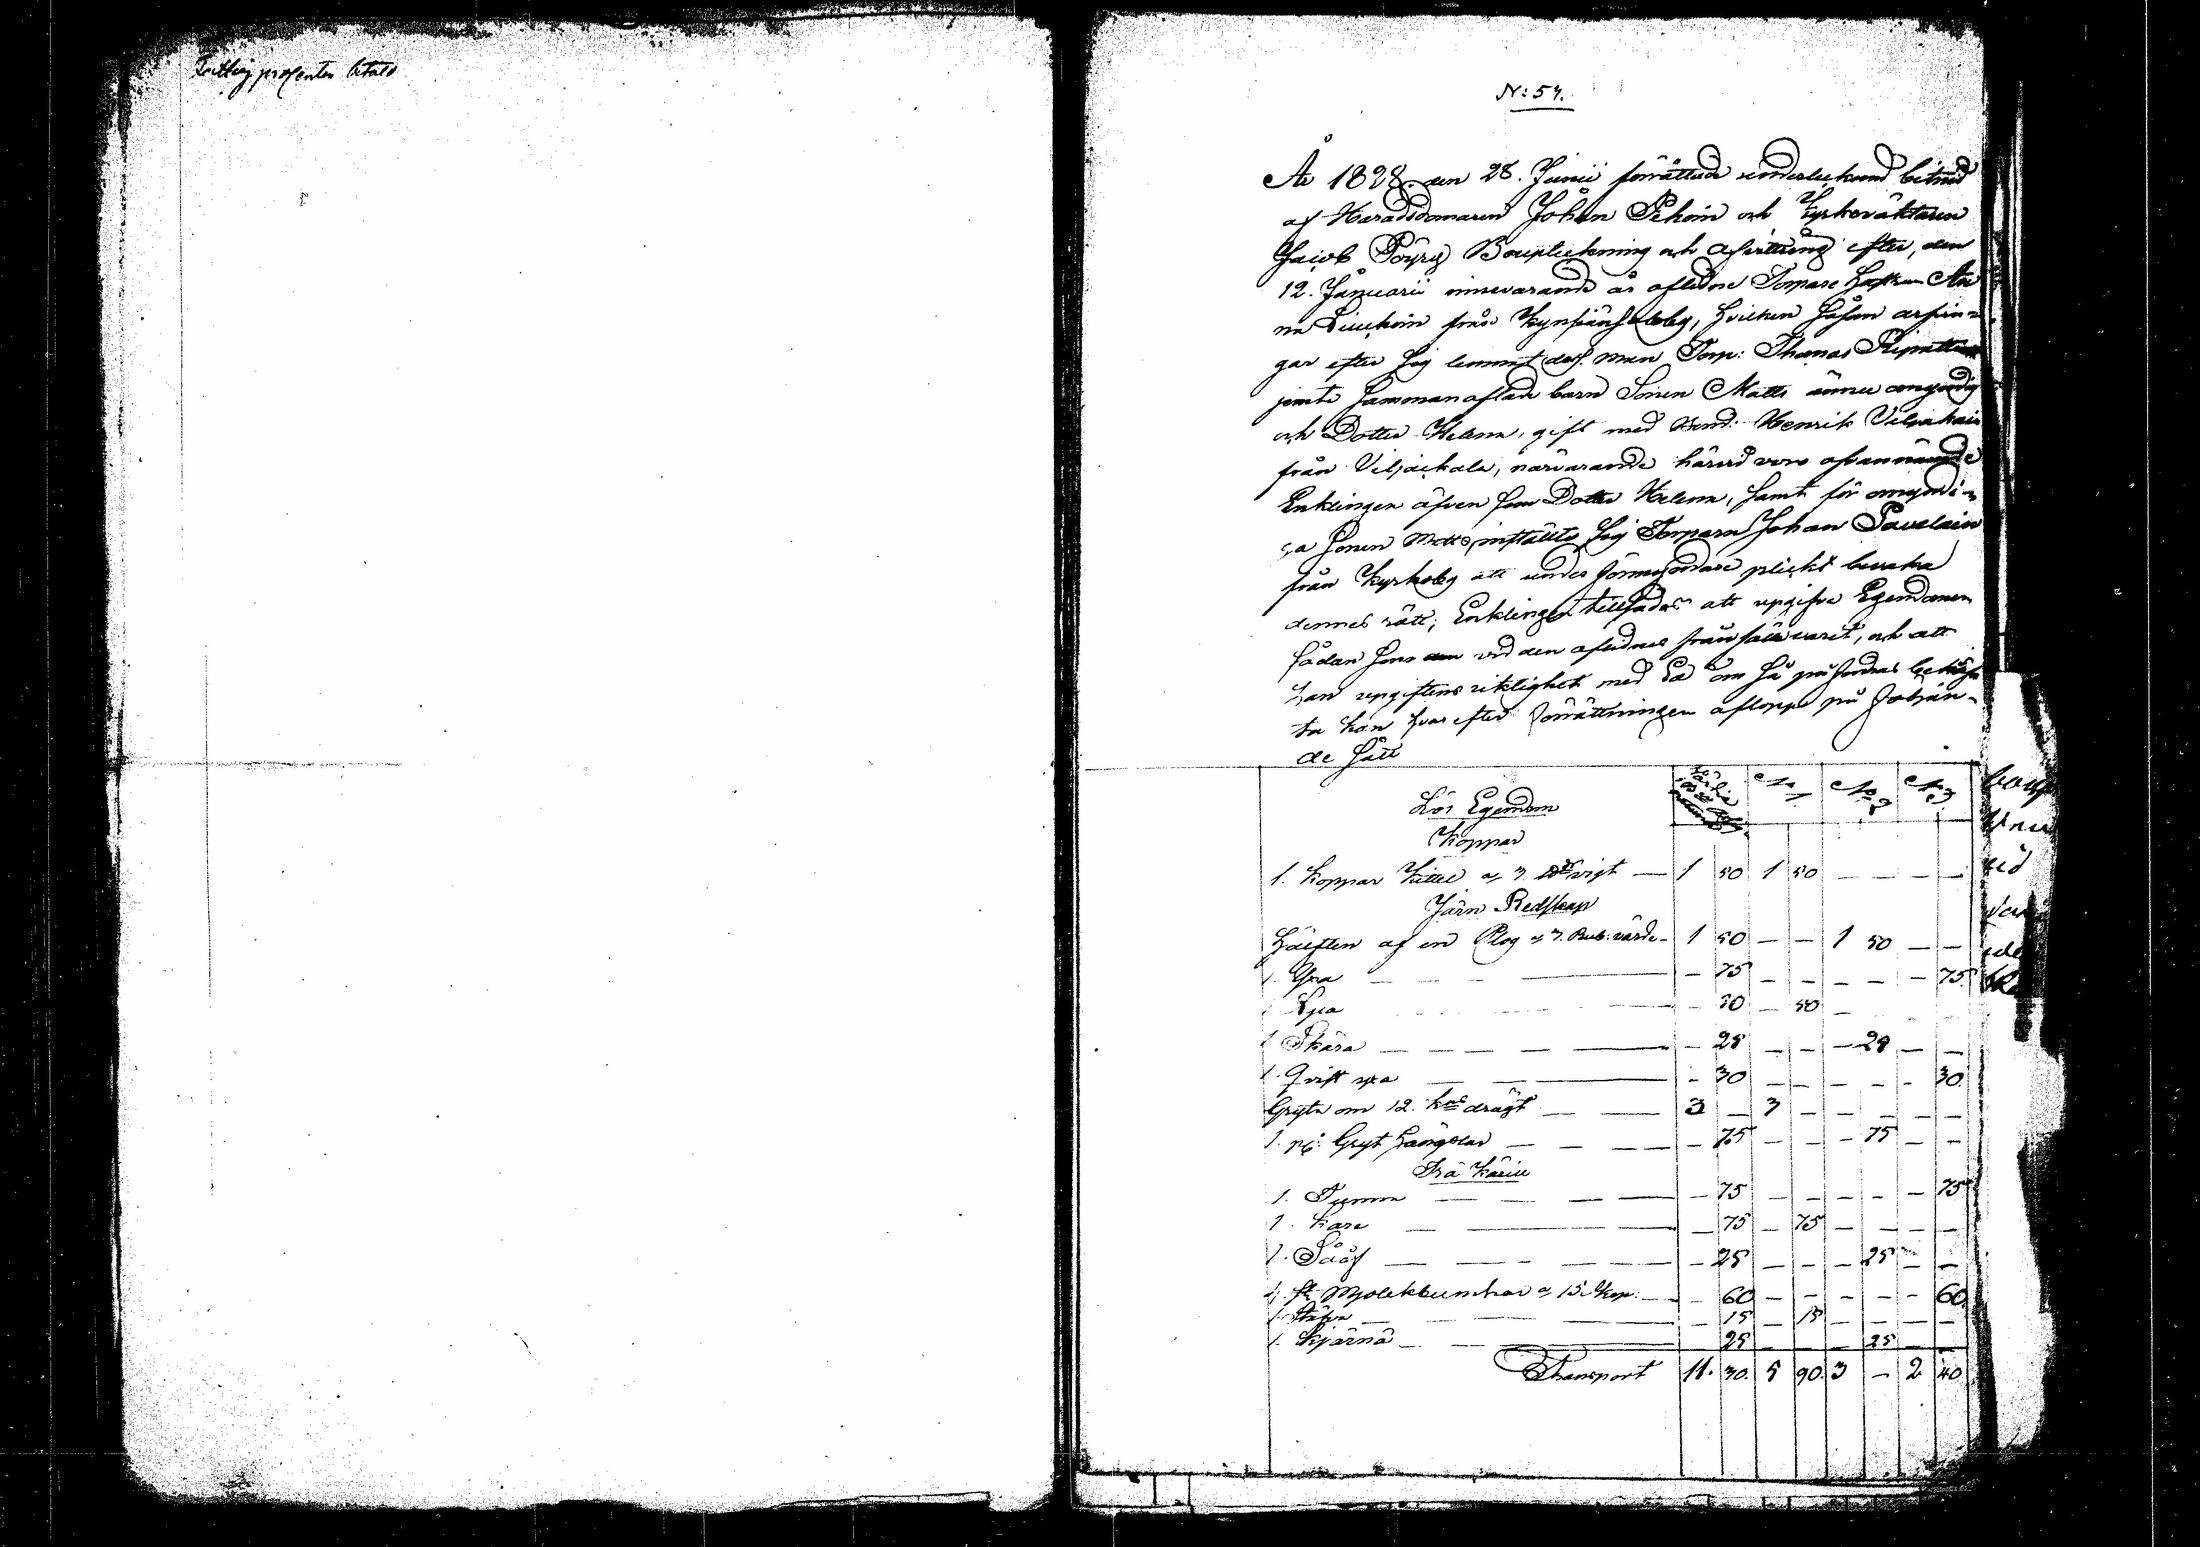 Fattig procenten betald
N: 57.
År 1828. den 28. Junii förrättade undertecknad biträd
af Häradsdomaren Johan Pekoin och Kyrkoväktaren
Jacob Pöyry Boupteckning och afvittring efter, den
12. Januarii innevarande år aflidne Torpare hustrun An
na från hvilken såsom arfvin-
gar efter sig lemnat dess man Torp: Thomas
jemte sammanaflade barn Sonen Matts ännu omyndig
och Dotter Helena, gift med Bond: Henrik Viljakain
från Viljackala, närvarande härvid voro ofvannämnde
Enklingen äfven som Dotter Helena, samt för omyndi-
ga Sonen Matts inställte sig Torparen Johan Pavelain
från Kyrkoby att under förmyndare plickt bevaka
dennes rätt; Enklingen tillsades att upgifva Egendomen
sådan som den vid den aflidnes frånfälle varit, och att
han upgiftens riktighet med Ed om så påfordras bekräf
ta kan hvarefter förrättningen aflopp på följan-
de sätt
Lös Egendom
N: 1 N: 2 N: 3
Koppar
1. Koppar Kittel a 3. vigt — 1 50 1 50 — — — —
Järn Redskap
Hälften af en Plog a 3. Rub: värde - 1 50 — — 1 50 — —
1. Yxa — 75 — — — — — 75
1 Lya — 50 — 50 —
1 Skära — 25 — — — 25 — —
1. Qvist yxa — 30 — — — — — 30
Gryta om 12. drägt — 3 — 3 — — — — —
1. pr: Gryt hängslar — 75 — — — 75 — —
Trä Käril
1. Tunna — 75 — — — — — 75
1. Kare — 75 — 75 — — — —
1. Såå — 25 — — — 25 — —
4. st Mjölkbunkar a 15. kop: — 60 — — — — — 60
1 Stäfva — 15 — 15 — — — —
1. Kjärna — 25 — — — 25 — —
Transport 11. 30. 5 90. 3 — 2 40